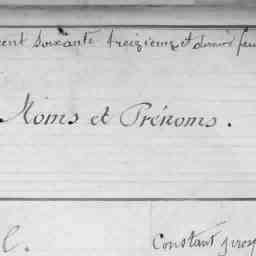 cent soixante treizieme et dernier feu
Noms et Prénoms.
C. Constant